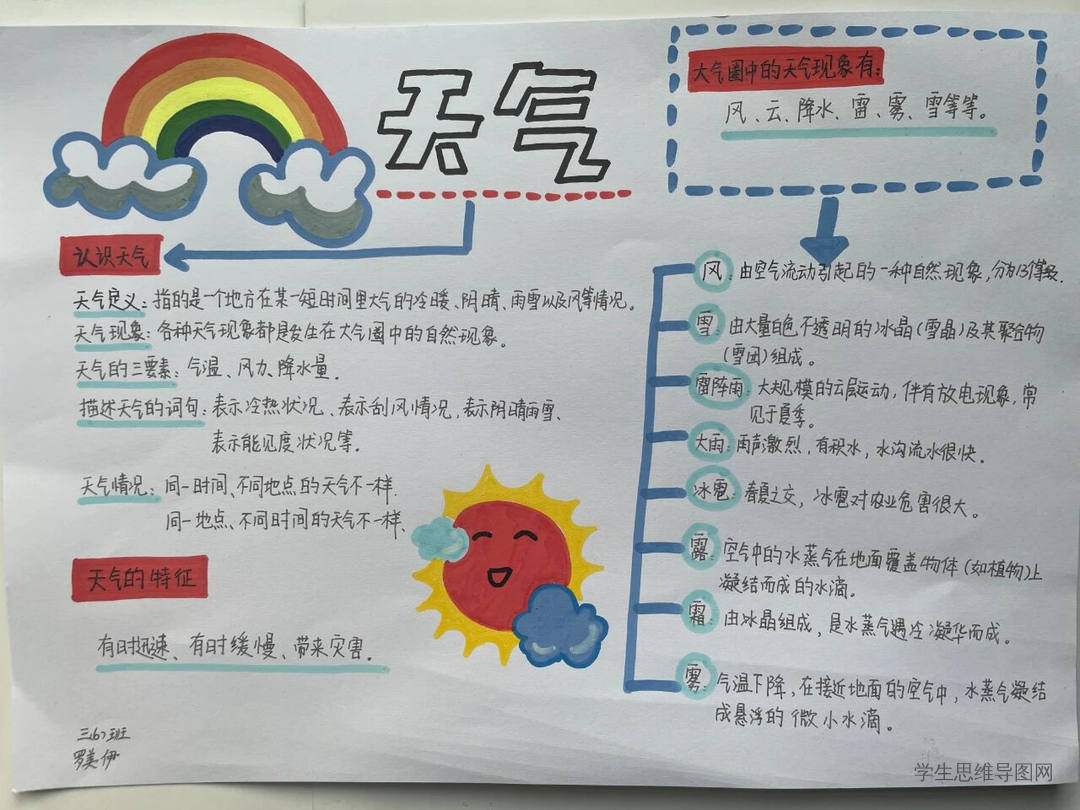 天气
认识天气
天气定义：指的是一个地方在某一短时间里大气的冷暖、阴晴、雨雪以及风等情况。
天气现象：各种天气现象都是发生在大气圈中的自然现象。
天气的三要素：气温、风力、降水量.
描述天气的词句：表示冷热状况、表示刮风情况，表示阴晴雨雪、
表示能见度状况等.
天气情况：同一时间、不同地点的天气不一样.
同一地点、不同时间的天气不一样、
天气的特征
有时迅速、有时缓慢、带来灾害.
三(6)班
罗美伊
大气圈中的天气现象有：
风、云、降水、雷、雾、雪等等。
风：由空气流动引起的一种自然现象，分为13个等级.
雪：由大量白色不透明的冰晶（雪晶）及其聚合物
（雪团）组成。
雷阵雨：大规模的云层运动，伴有放电现象，常
见于夏季。
大雨：雨声激烈，有积水，水沟流水很快。
冰雹：春夏之交，冰雹对农业危害很大。
露：空气中的水蒸气在地面覆盖物体（如植物）上
凝结而成的水滴。
霜：由冰晶组成，是水蒸气遇冷凝华而成。
雾：气温下降，在接近地面的空气中，水蒸气凝结
成悬浮的微小水滴。
学生思维导图网